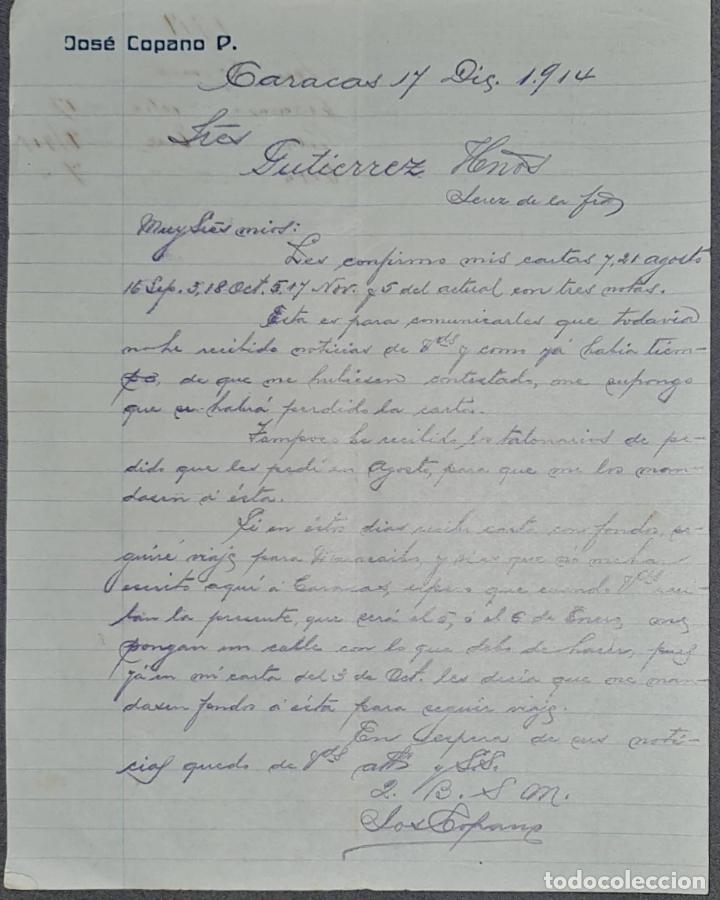 José Copano P.
Caracas 17 Dic. 1.914
Srēs
Gutierrez Hños
Jerez de la frã
Muy Srēs mios:
Les confirmo mis cartas 7, 21 agosto
16 Sep. 3, 18 Oct. 5, 17 Nov. y 5 del actual con tres notas.
Esta es para comunicarles que todavia
no he recibido noticias de Vds y como yá habia tiem-
po, de que me hubiesen contestado, me supongo
que se habrá perdido la carta.
Tampoco he recibido los talonarios de pe-
dido que les pedí en Agosto, para que me los man-
dasen á ésta.
Si en éstos dias recibo carta con fondos, se-
guiré viaje para Maracaibo, y que no me han
escrito aqui á Caracas, espero que cuando Vds reci-
ban la presente, que será el 5, ó el 6 de Enero, me
pongan un cable con lo que debo de hacer, pues
yá en mi carta del 3 de Oct. les decia que me man-
dasen fondos á ésta para seguir viaje.
En espera de sus noti-
cias quedo de Vds atto y S.S.
Q. B. S. M.
José Copano
todocoleccion.net